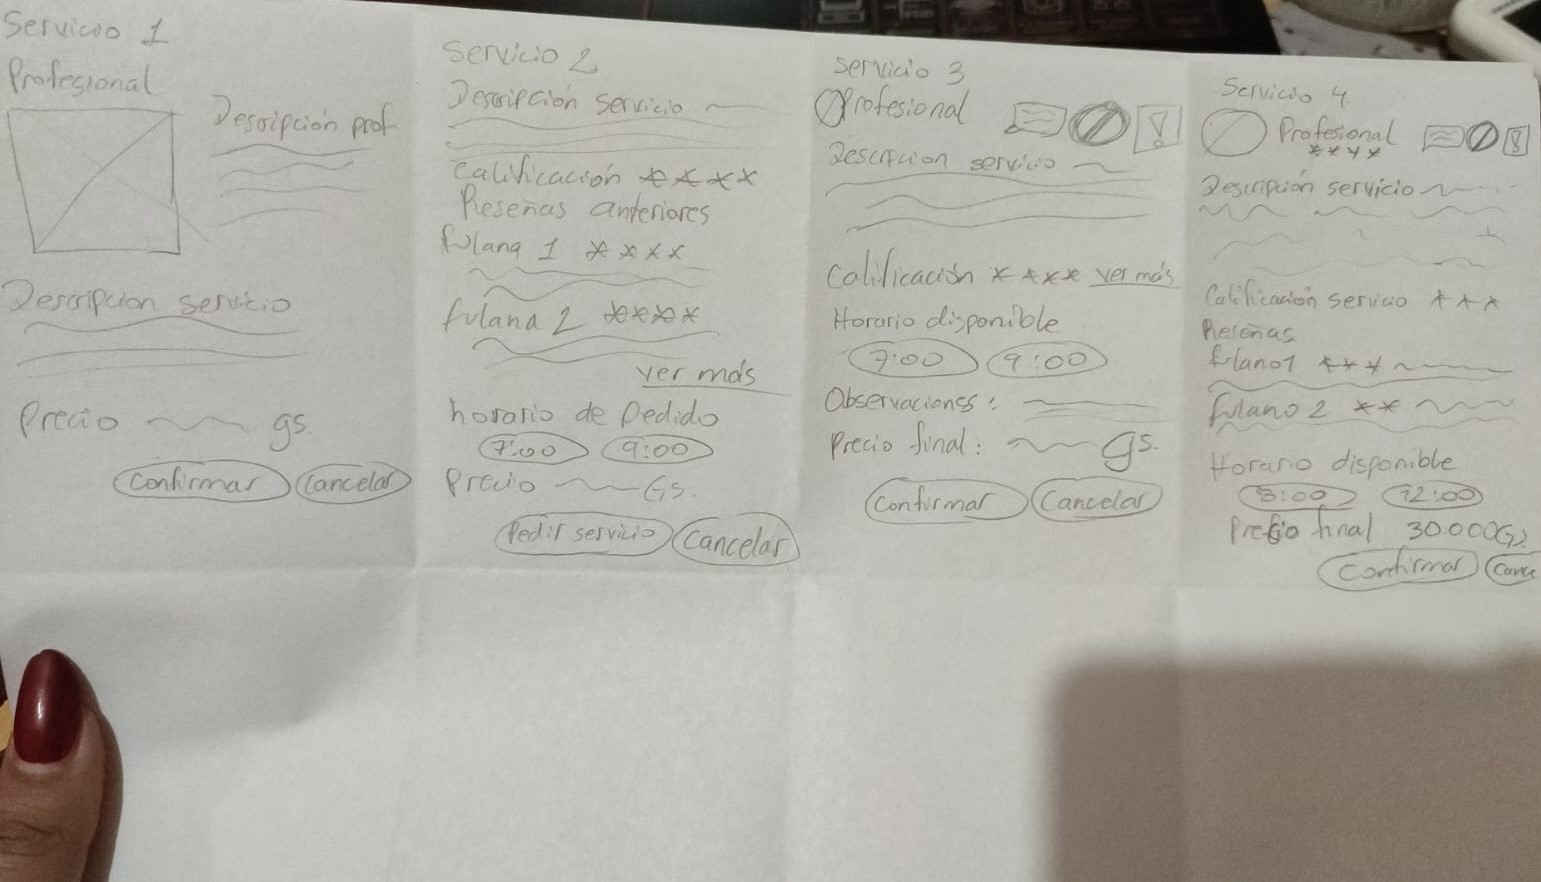 Servicio 1
Profesional
Descripción prof
Descripcion servicio
Precio gs.
Confirmar Cancelar
Servicio 2
Descripción servicio
Calificación ****
Reseñas anteriores
fulana 1 ****
fulana 2 ****
ver más
horario de pedido
7:00 9:00
Precio Gs.
Pedir servicio Cancelar
servicio 3
Profesional
Descripcion servicio
Calificación **** ver más
Horario disponible
7:00 9:00
Observaciones:
Precio final: gs.
Confirmar Cancelar
Servicio 4
Profesional
****
Descripción servicio
Calificación servcio ***
Reseñas
fulano1 ***
fulano 2 **
Horario disponible
8:00 12:00
Precio final 30.000Gs
Confirmar Cance